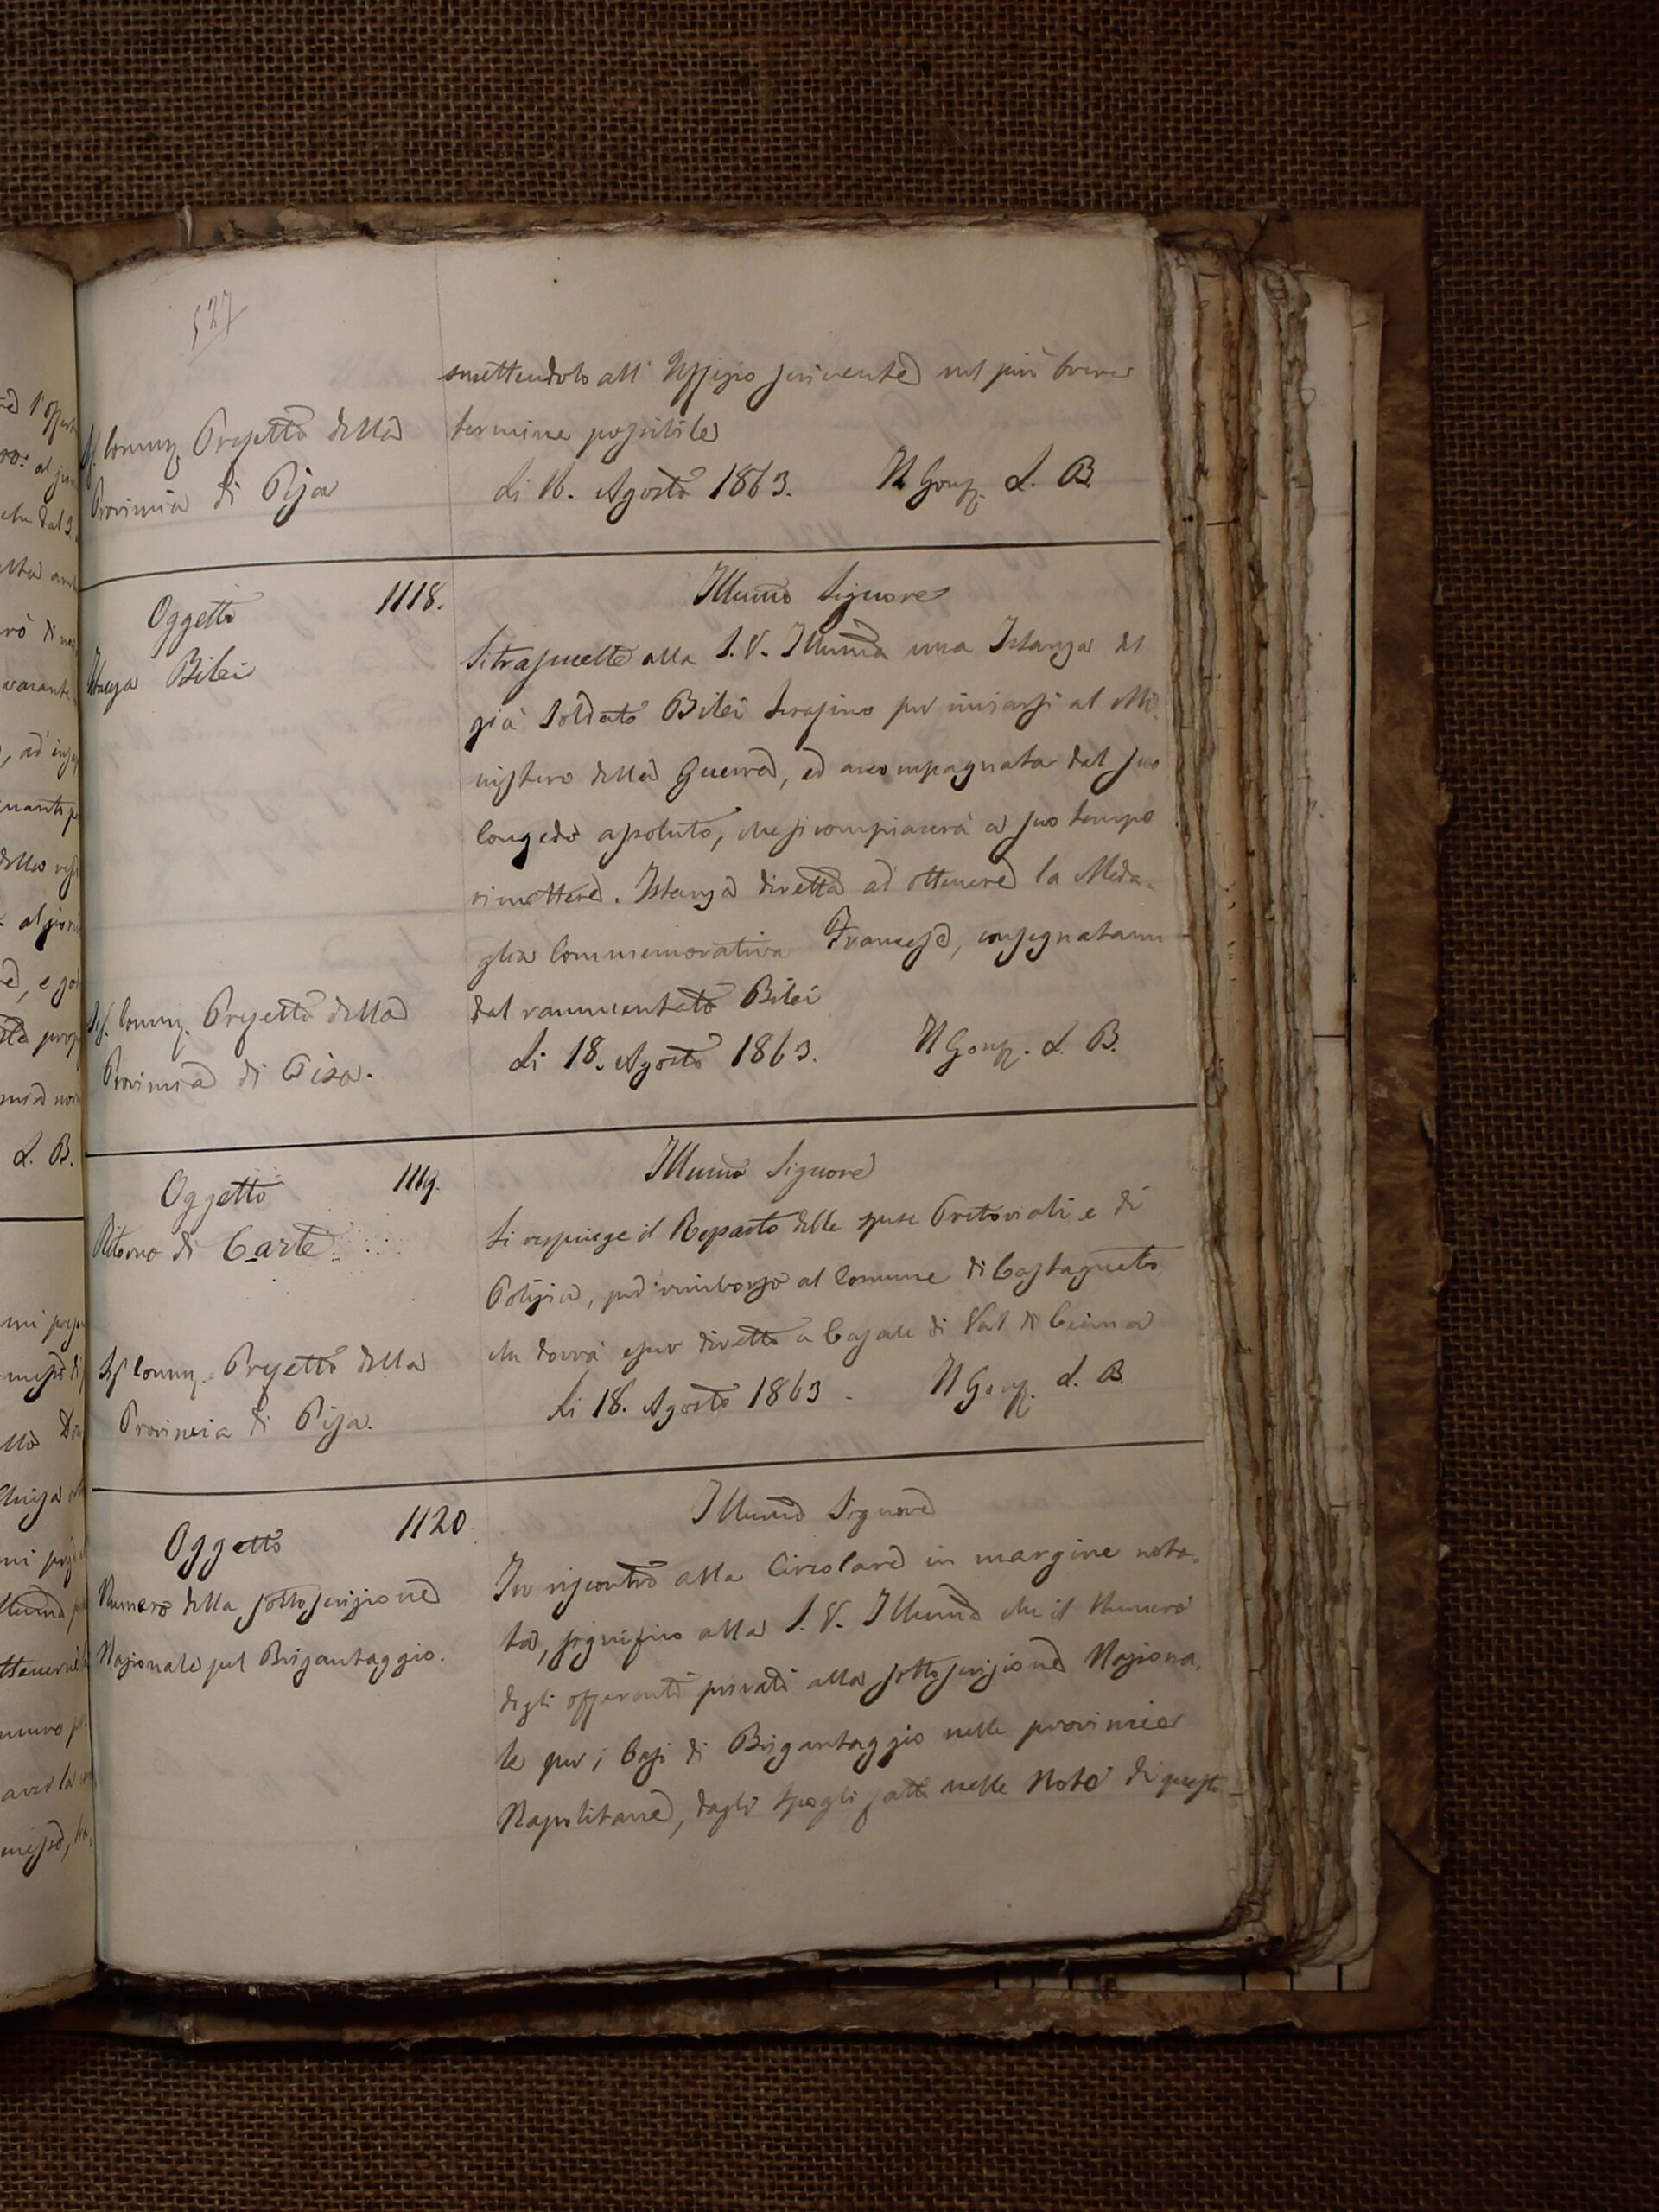 527
smettendolo all' Uffizio scrivente nel più breve
termine possibile
Sig. Comm. Prefetto della
Provincia di Pisa
Li 16. Agosto 1863. Il Gonf. L. B.
Oggetto 1118.
Istanza Bilei
Illumo Signore
Si trasmette alla S. V. Illuma una Istanza del
già Soldato Bilei Serafino per inviarsi al Mi-
nistero della Guerra, ed accompagnata dal suo
Congedo assoluto, che si compiacerà a suo tempo
rimettere. Istanza diretta ad ottenere la Meda-
glia Commemorativa Francese, consegnatami
dal rammentato Bilei
Sig. Comm. Prefetto della
Provincia di Pisa.
Li 18. Agosto 1863. Il Gonf. L. B.
Oggetto 1119.
Ritorno di Carte
Illumo Signore
Si respinge il Reparto delle spese Pretoriali e di
Polizia, pel rimborso al Comune di Castagneto
che dovrà esser diretto a Casale di Val di Cecina
Sig Comm. Prefetto della
Provincia di Pisa.
Li 18. Agosto 1863. Il Gonf. L. B.
Oggetto 1120
Numero della sottoscrizione
Nazionale sul Brigantaggio.
Illumo Signore
In riscontro alla Circolare in margine nota-
ta, significo alla S. V. Illuma che il Numero
degli offerenti privati alla sottoscrizione Naziona-
le per i Casi di Brigantaggio nelle provincie
Napolitane, dagli spogli fatti nelle Note di questo